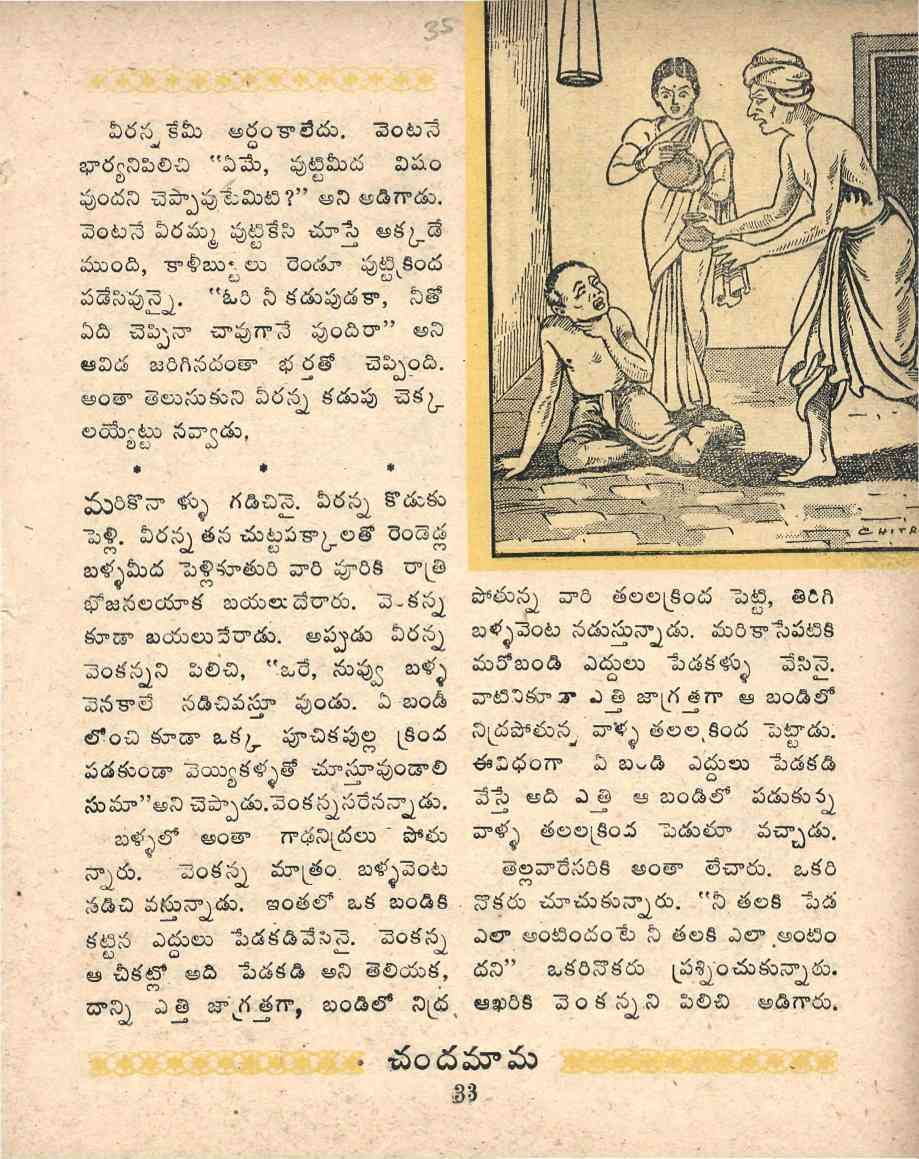 35
వీరన్నకేమీ అర్ధంకాలేదు. వెంటనే
భార్యనిపిలిచి "ఏమే, వుట్టిమీద విషం
వుందని చెప్పావుటేమిటి?" అని అడిగాడు.
వెంటనే వీరమ్మ వుట్టికేసి చూస్తే అక్కడే
ముంది, కాళీబుట్టలు రెండూ వుట్టిక్రింద
పడేసివున్నై. "ఓరి నీ కడుపుడకా, నీతో
ఏది చెప్పినా చావుగానే వుందిరా" అని
ఆవిడ జరిగినదంతా భర్తతో చెప్పింది.
అంతా తెలుసుకుని వీరన్న కడుపు చెక్క
లయ్యేట్టు నవ్వాడు.
* * *
మరికొనాళ్ళు గడిచినై. వీరన్న కొడుకు
పెళ్లి. వీరన్న తన చుట్టపక్కాలతో రెండెడ్ల
బళ్ళమీద పెళ్లికూతురి వారి వూరికి రాత్రి
భోజనలయాక బయలుదేరారు. వెంకన్న
కూడా బయలుదేరాడు. అప్పుడు వీరన్న
వెంకన్నని పిలిచి, "ఒరే, నువ్వు బళ్ళ
వెనకాలే నడిచివస్తూ వుండు. ఏ బండీ
లోంచి కూడా ఒక్క పూచికపుల్ల క్రింద
పడకుండా వెయ్యికళ్ళతో చూస్తూవుండాలి
సుమా" అని చెప్పాడు. వెంకన్నసరేనన్నాడు.
బళ్ళలో అంతా గాఢనిద్రలు పోతు
న్నారు. వెంకన్న మాత్రం బళ్ళవెంట
నడిచి వస్తున్నాడు. ఇంతలో ఒక బండికి
కట్టిన ఎద్దులు పేడకడివేసినై. వెంకన్న
ఆ చీకట్లో అది పేడకడి అని తెలియక,
దాన్ని ఎత్తి జాగ్రత్తగా, బండిలో నిద్ర
CHITR
పోతున్న వారి తలలక్రింద పెట్టి, తిరిగి
బళ్ళవెంట నడుస్తున్నాడు. మరికాసేపటికి
మరోబండి ఎద్దులు పేడకళ్ళు వేసినై.
వాటినికూడా ఎత్తి జాగ్రత్తగా ఆ బండిలో
నిద్రపోతున్న వాళ్ళ తలలక్రింద పెట్టాడు.
ఈవిధంగా ఏ బండి ఎద్దులు పేడకడి
వేస్తే అది ఎత్తి ఆ బండిలో పడుకున్న
వాళ్ళ తలలక్రింద పెడుతూ వచ్చాడు.
తెల్లవారేసరికి అంతా లేచారు. ఒకరి
నొకరు చూచుకున్నారు. "నీ తలకి పేడ
ఎలా అంటిందంటే నీ తలకి ఎలా అంటిం
దని" ఒకరినొకరు ప్రశ్నించుకున్నారు.
ఆఖరికి వెంకన్నని పిలిచి అడిగారు.
చందమామ
33